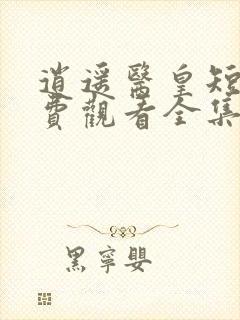 逍遥醫皇短
費觀看全集
黑寧嬰